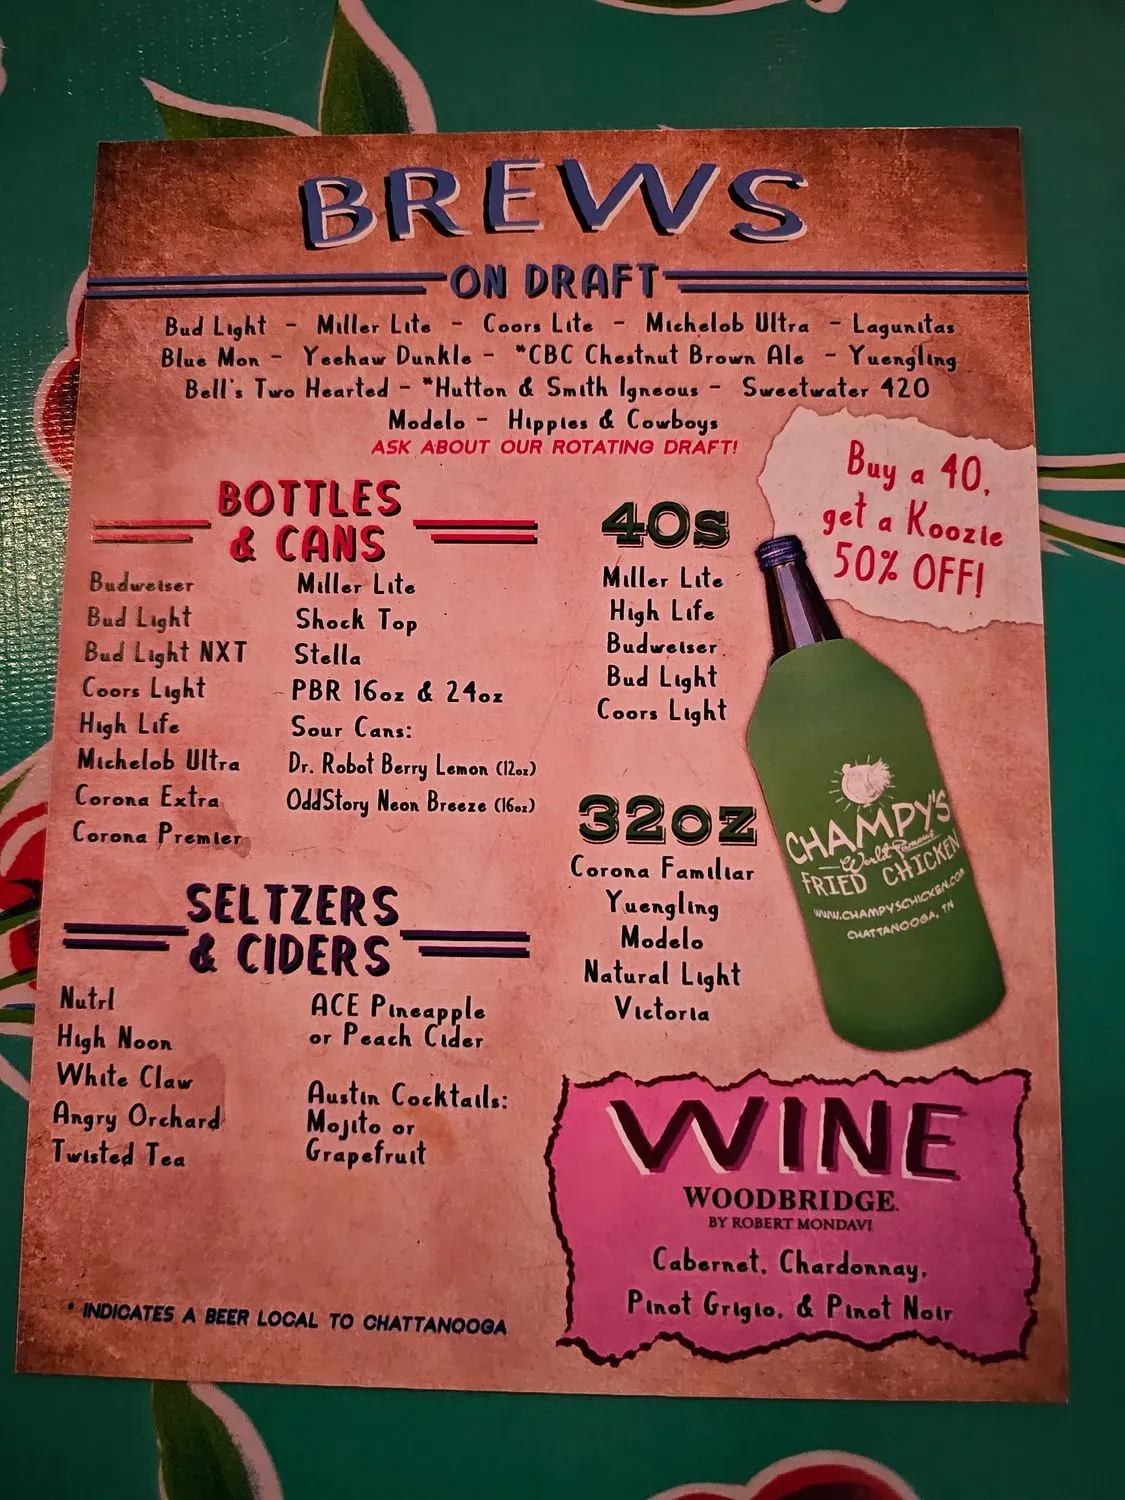 BREWS
ON DRAFT
Bud Light - Miller Lite - Coors Lite - Michelob Ultra - Lagunitas
Blue Mon - Yeehaw Dunkle - *CBC Chestnut Brown Ale - Yuengling
Bell's Two Hearted - *Hutton & Smith Igneous - Sweetwater 420
Modelo - Hippies & Cowboys
ASK ABOUT OUR ROTATING DRAFT!
Buy a 40,
get a Koozie
50% OFF!
BOTTLES
& CANS
Budweiser
Bud Light
Bud Light NXT
Coors Light
High Life
Michelob Ultra
Corona Extra
Corona Premier
Miller Lite
Shock Top
Stella
PBR 16oz & 24oz
Sour Cans:
Dr. Robot Berry Lemon (12oz)
OddStory Neon Breeze (16oz)
40s
Miller Lite
High Life
Budweiser
Bud Light
Coors Light
32oz
Corona Familiar
Yuengling
Modelo
Natural Light
Victoria
CHAMPY'S
World Famous
FRIED CHICKEN
WWW.CHAMPYSCHICKEN.COM
CHATTANOOGA, TN
SELTZERS
& CIDERS
Nutrl
High Noon
White Claw
Angry Orchard
Twisted Tea
ACE Pineapple
or Peach Cider
Austin Cocktails:
Mojito or
Grapefruit
WINE
WOODBRIDGE.
BY ROBERT MONDAVI
Cabernet, Chardonnay,
Pinot Grigio, & Pinot Noir
* INDICATES A BEER LOCAL TO CHATTANOOGA